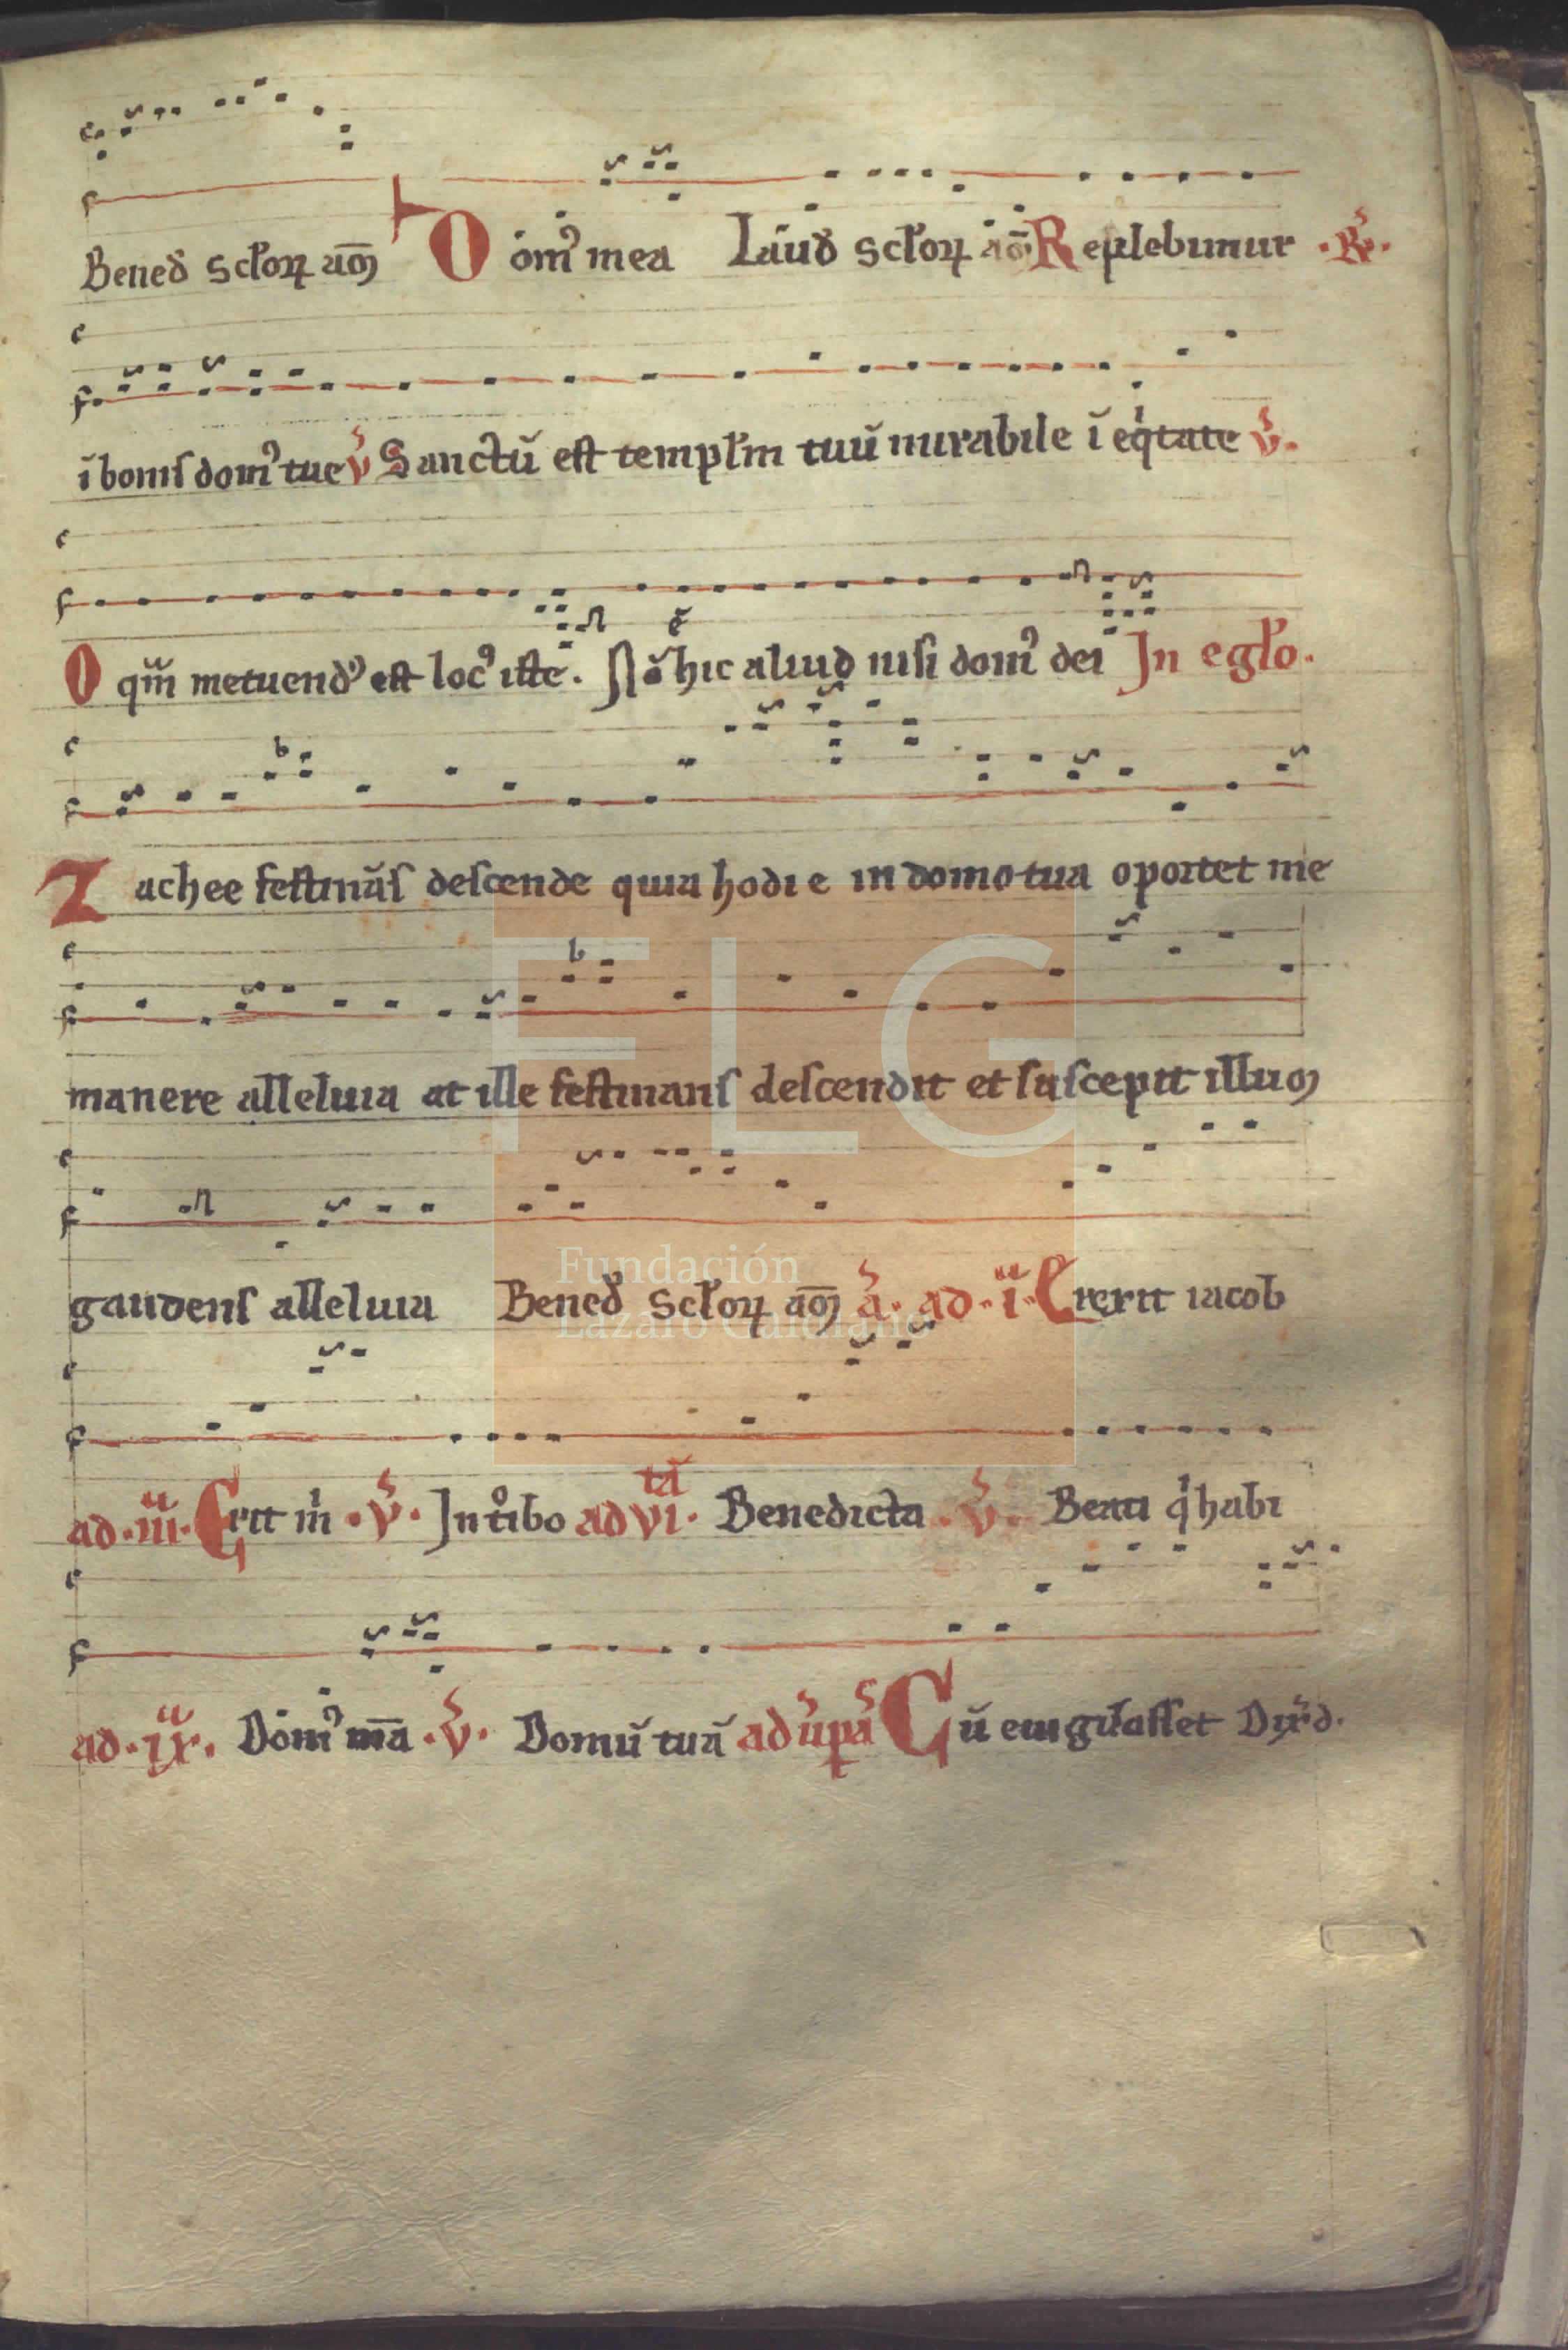 Bened̄ scl̄oꝝ am̄ Domꝰ mea Laud̄ scl̄oꝝ am̄ Replebimur .R̄.
ī bonis domꝰ tue v̄ Sanctū est templ̄m tuū mirabile ī eqͥtate v̄.
O qm̄ metuendꝰ est locꝰ iste. Nō ē hic aliud nisi domꝰ dei In eglo.
Zachee festinās descende quia hodie in domo tua oportet me
manere alleluia at ille festinans descendit et suscepit illum
gaudens alleluia Bened̄ scl̄oꝝ am̄ ā. ad .i. Ererit iacob
ad .iii. Erit m̄ .v̄. Introibo ad vi.ta̅ Benedicta .v̄. Beati qͥ habi
ad .ix. Domꝰ m̄a .v̄. Domū tuā ad up̄as Cū euigl̄asset Dixꝰ d.
FLG
Fundación
Lázaro Galdiano